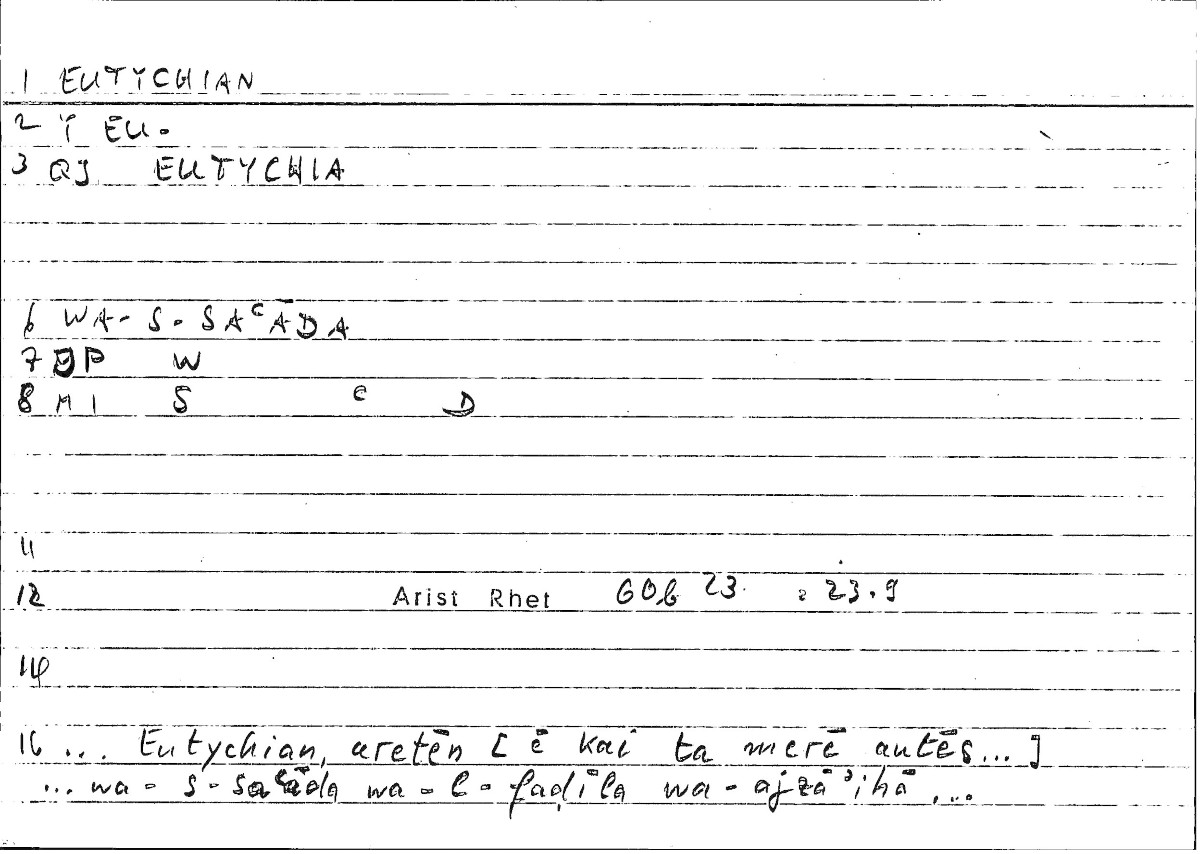 1 EUTYCHIAN
2 Y EU-
3 QJ EUTYCHIA
6 WA-S-SAᶜĀDA
7 JP W
8 MI S ᶜ D
11
12 Arist Rhet 60b 23 : 23.9
14
16 ... Eutychian, aretēn [ē kai ta merē autēs...]
... wa-s-saᶜāda wa-l-faḍīla wa-ajzāʾihā,...